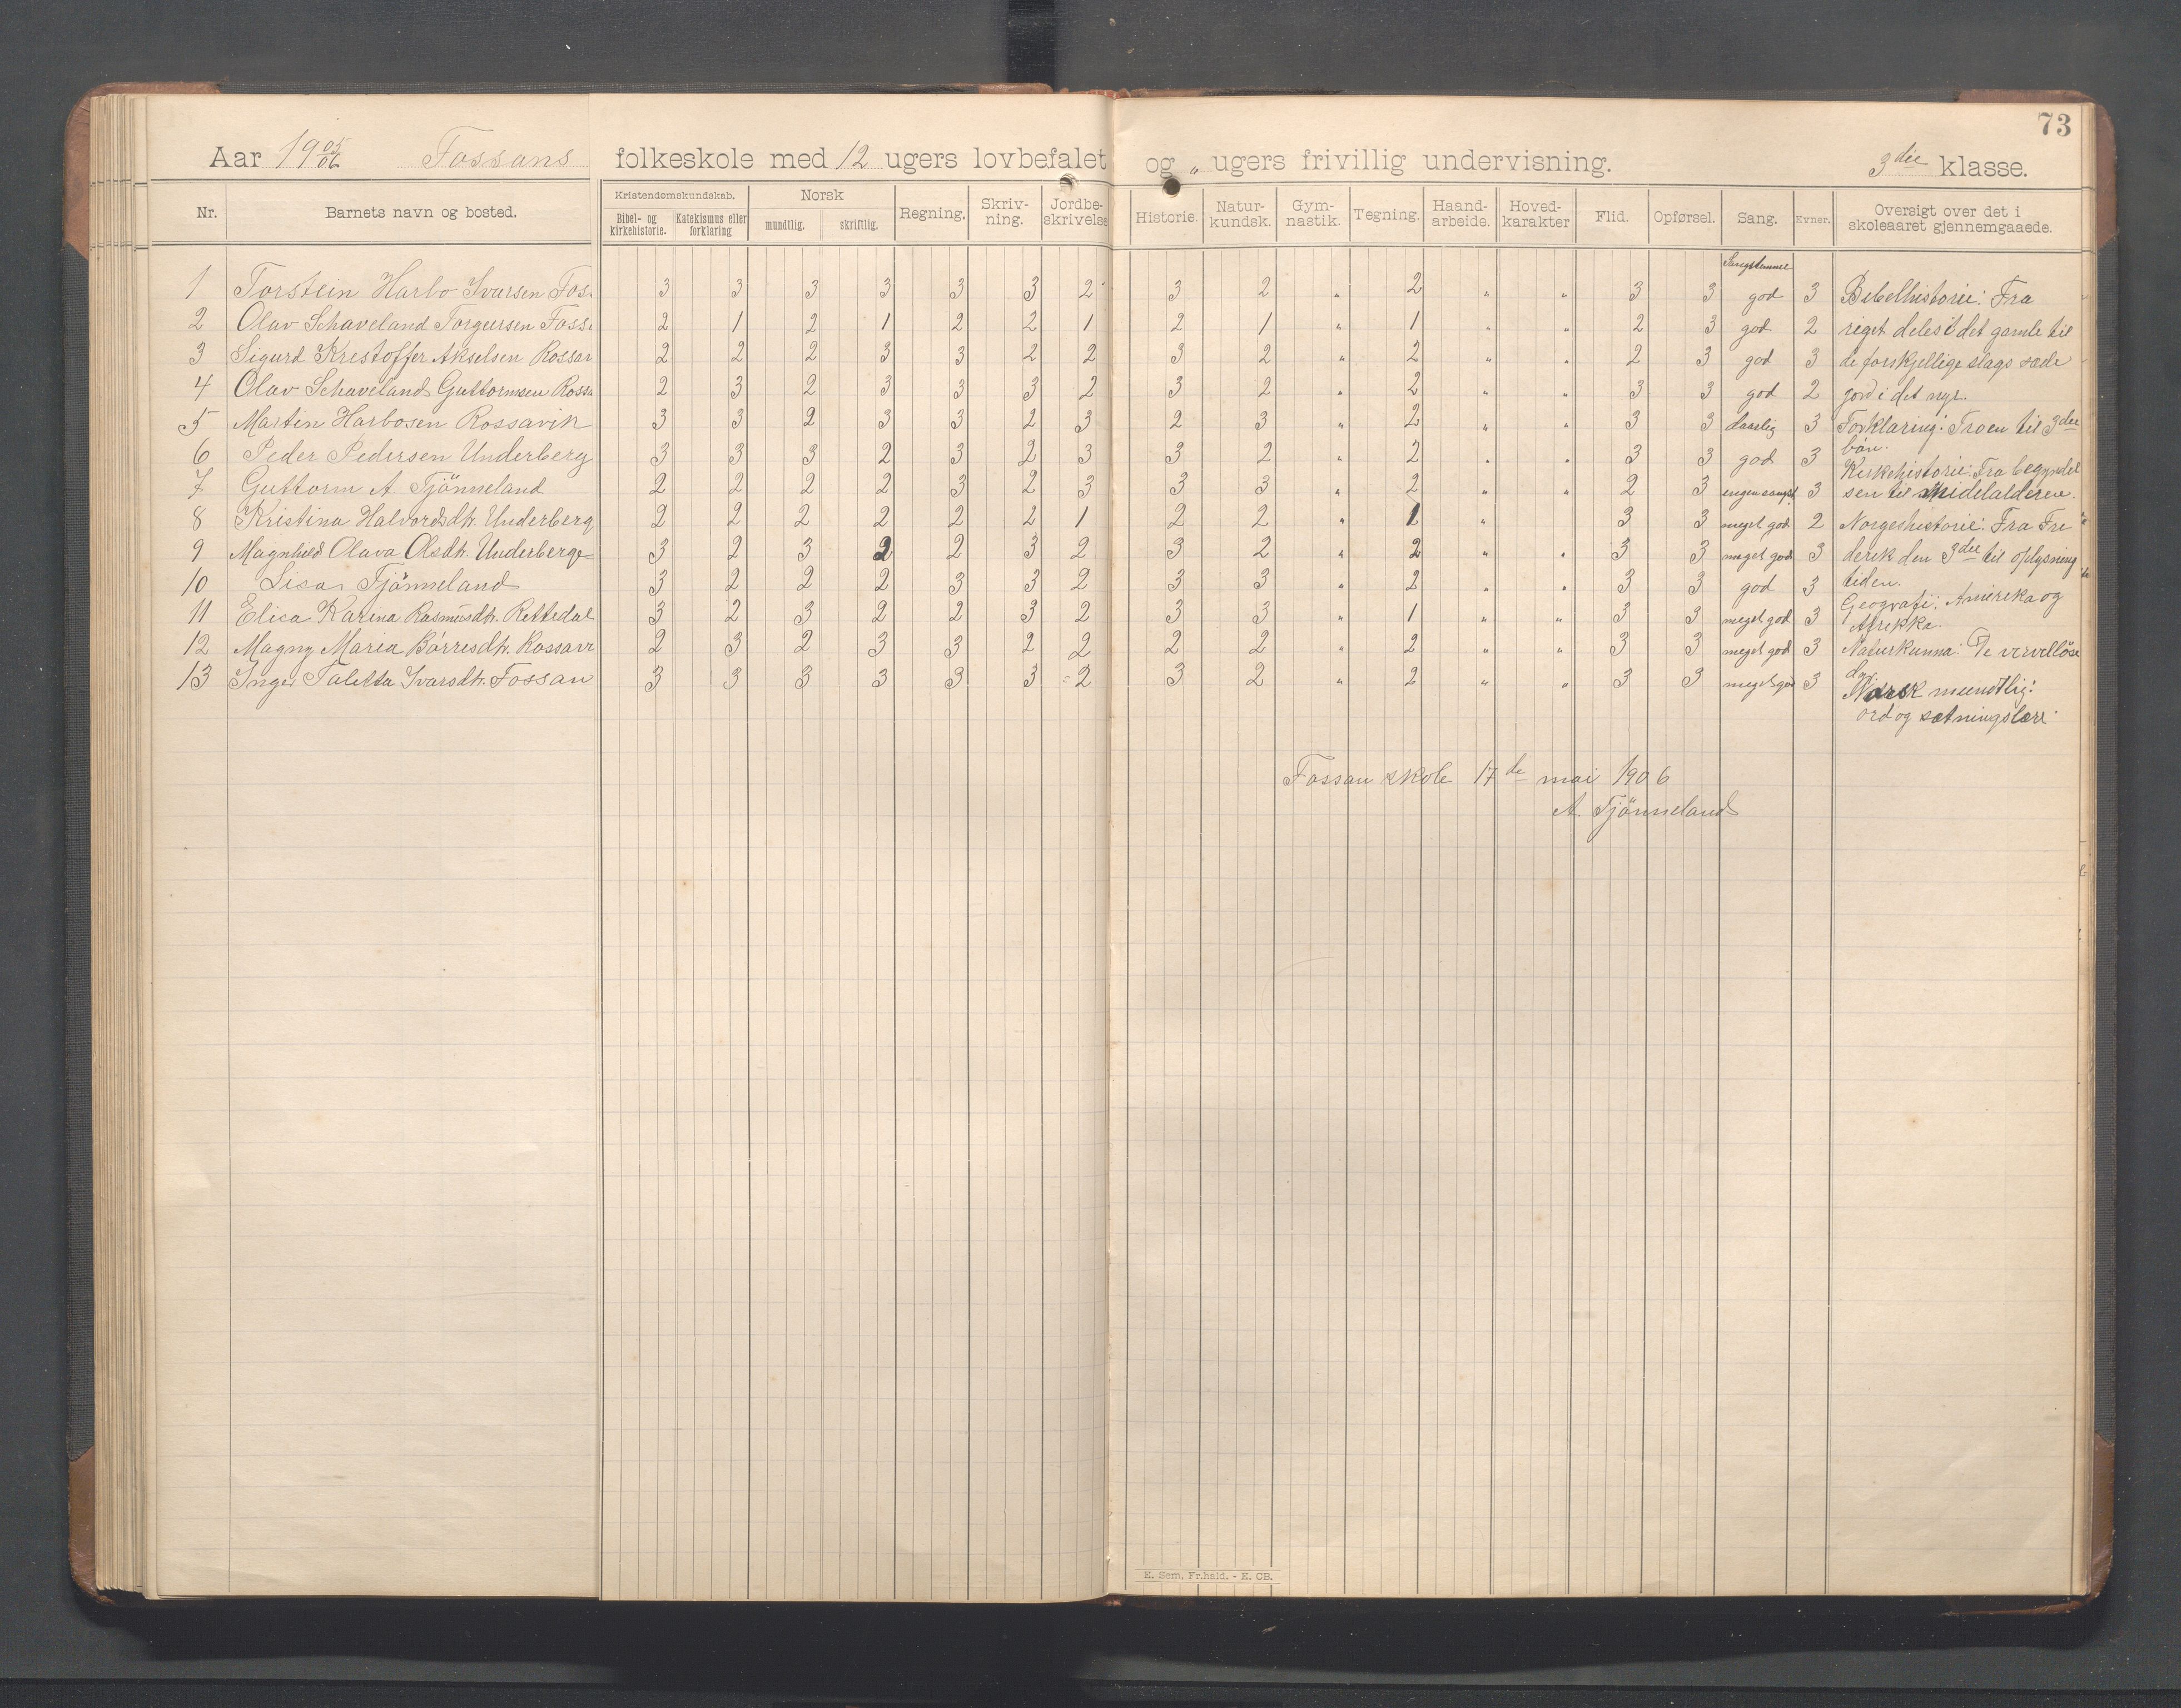 73
Aar 19 05/06 Fossans folkeskole med 12 ugers lovbefalet og „ ugers frivillig undervisning. 3die klasse.
Nr. Barnets navn og bosted. Kristendomskundskab. Bibel- og kirkehistorie. Katekismus eller forklaring Norsk mundtlig. skriftlig. Regning. Skriv-ning. Jordbe-skrivelse Historie. Natur-kundsk. Gym-nastik. Tegning. Haand-arbeide. Hoved-karakter Flid. Opførsel. Sang. Evner. Oversigt over det i skoleaaret gjennemgaaede.
Sangstemme
1 Torstein Harbo Ivarsen Fos 3 3 3 3 3 3 2 3 2 „ 2 „ „ 3 3 god 3 Bibelhistorie: Fra
2 Olav Schaveland Torgeirsen Foss 2 1 2 1 2 2 1 2 1 „ 1 „ „ 2 3 god 2 riget deles i det gamle til
3 Sigurd Kristoffer Akselsen Rossav 2 2 2 3 3 2 2 3 2 „ 2 „ „ 2 3 god 3 de forskjellige slags sæde
4 Olav Schaveland Guttormsen Rossa 2 3 2 3 3 3 2 3 2 „ 2 „ „ 3 3 god 2 jord i det nye.
5 Martin Harbosen Rossavik 3 3 2 3 3 2 3 2 3 „ 2 „ „ 3 3 daarlig 3 Forklaring: Troen til 3die
bøn.
6 Peder Pedersen Underberg 3 3 3 2 3 2 3 3 2 „ 2 „ „ 3 3 god 3 Kirkehistorie: Fra begyndel
7 Guttorm A. Tjönneland 2 2 2 2 3 2 3 3 3 „ 2 „ „ 2 3 ingen sangst. 3 sen til Midelalderen.
8 Kristina Halvorsdtr. Underberg 2 2 2 2 2 2 1 2 2 „ 1 „ 3 3 meget god 2 Norgeshistorie: Fra Fre
9 Magnhild Olava Olsdtr. Underberge 3 2 3 2 2 3 2 3 2 „ 2 „ „ 3 3 meget god 3 derik den 3die til oplysning
10 Lisa Tjönneland 3 2 2 2 3 3 2 3 3 „ 2 „ „ 3 3 god 3 tiden.
Geografi: Amerika og
11 Elisa Karina Rasmusdtr. Rettedal 3 2 3 2 2 3 2 3 3 „ 1 „ „ 3 3 meget god 3 Afrikka.
12 Magny Maria Börresdtr. Rossavi 2 3 2 3 3 2 2 2 2 „ 2 „ „ 3 3 meget god 3 Naturkunna: De virvellöse
dyr.
13 Inger Taletta Ivarsdtr. Fossan 3 3 3 3 3 3 2 3 2 „ 2 „ „ 3 3 meget god 3 Norsk mundtlig:
ord og sætningslære
Fossan skole 17de mai 1906
A. Tjönneland
E. Sem, Fr.hald. - E. CB.